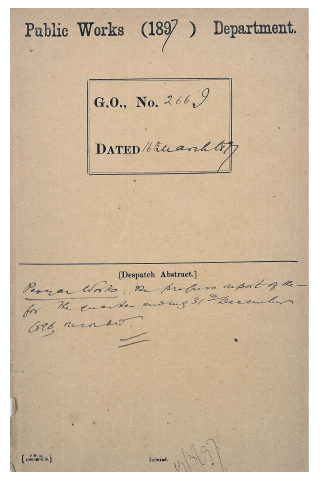 Public Works (1897) Department.
G.O., No. 266 I
DATED 16th March 1897
[Despatch Abstract.]
Periyar Works. The progress report of the
for the quarter ending 31st December
1896, recorded.
Indexed.
19/3/97